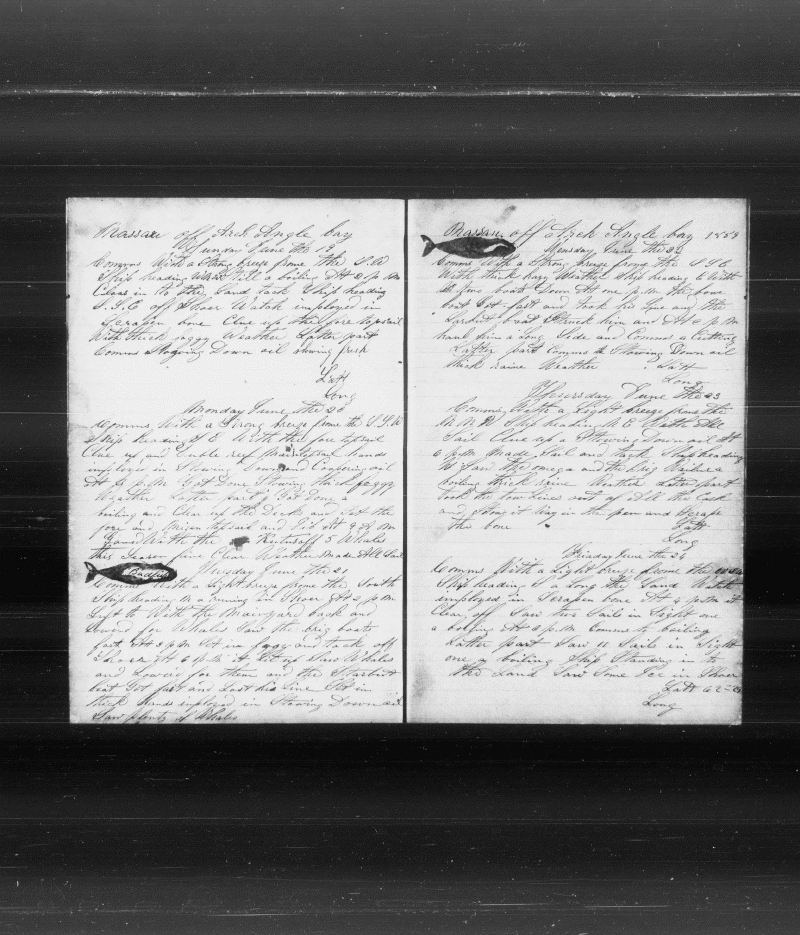 Nassau off Arch Angle bay
Sunday June the 19
Comms With a Strong breeze frome the S W
Ship heading a boiling At 2 p m
Clear in to the Land tack Ship heading
S.S.E off Shoer Watch imployed in
Scrapen bone Clue up the fore topsail
With thick foggy Weather Latter part
Comms Stowing Down oil Strong fresh
Latt
Long
Monday June the 20
Comms With a Strong breeze frome the S S W
Ship heading S E With the fore topsail
Clue up and Duble reef Maintopsail hands
imployed in Stowing Down and Coopering oil
At p.m Got Done Stowing thick foggy
Weather Latter part Got Done a
boiling and Clear up the Deck and Set the
fore and Mizen topsail and At m
Land With the 5 Whales
this Season fine Clear Weather Made All Sail
Tuesday June the 21
Comms With a Light breeze frome the South
Ship heading in Shoer At 2 p m
Luft to With the Mainyard back and
for Whales Saw the brig boats
fast At 3 p m Set in foggy and tack off
Shoer At 6 p m it Let up Saw Whales
and Lowerd for them and the Starbort
boat Got fast and Lost his Line Set in
thick hands imployed in Stowing Down oil
Saw plenty of Whales
Nassau off Arch Angle bay 1859
Wensday June the 22
Comms With a Strong breeze frome the S S E
With thick hazy Weather Ship heading E With
five boats Down At one p.m the bowe
boat Got fast and took his Line and the
Larbort boat Struck him and At 4 p m
haul him a Long Side and Comms a Cutting
Latter part Comms the Stowing Down oil
thick raine Weather Latt
Long
Thursday June the 23
Comms With a Light breeze frome the
N N W Ship heading N E With All
Sail Clue up a Stowing Down oil At
6 p.m Made Sail and tack Ship heading
W Saw the omega and the brig
boiling thick raine Weather Latter part
took the two Lines out of All the Cask
and Stow it Way in the pen and Scrape
the bone Latt
Long
Friday June the 24
Comms With a Light breeze frome the
Ship heading E a Long the Land Watch
imployed in Scrapen bone At 4 p.m it
Clear off Saw two Sails in Sight one
a boiling At 6 p.m Comms to boiling
Latter part Saw 11 Sails in Sight
one a boiling Ship Standing in to
the Land Saw Some Ice in Shoer
Latt 62
Long